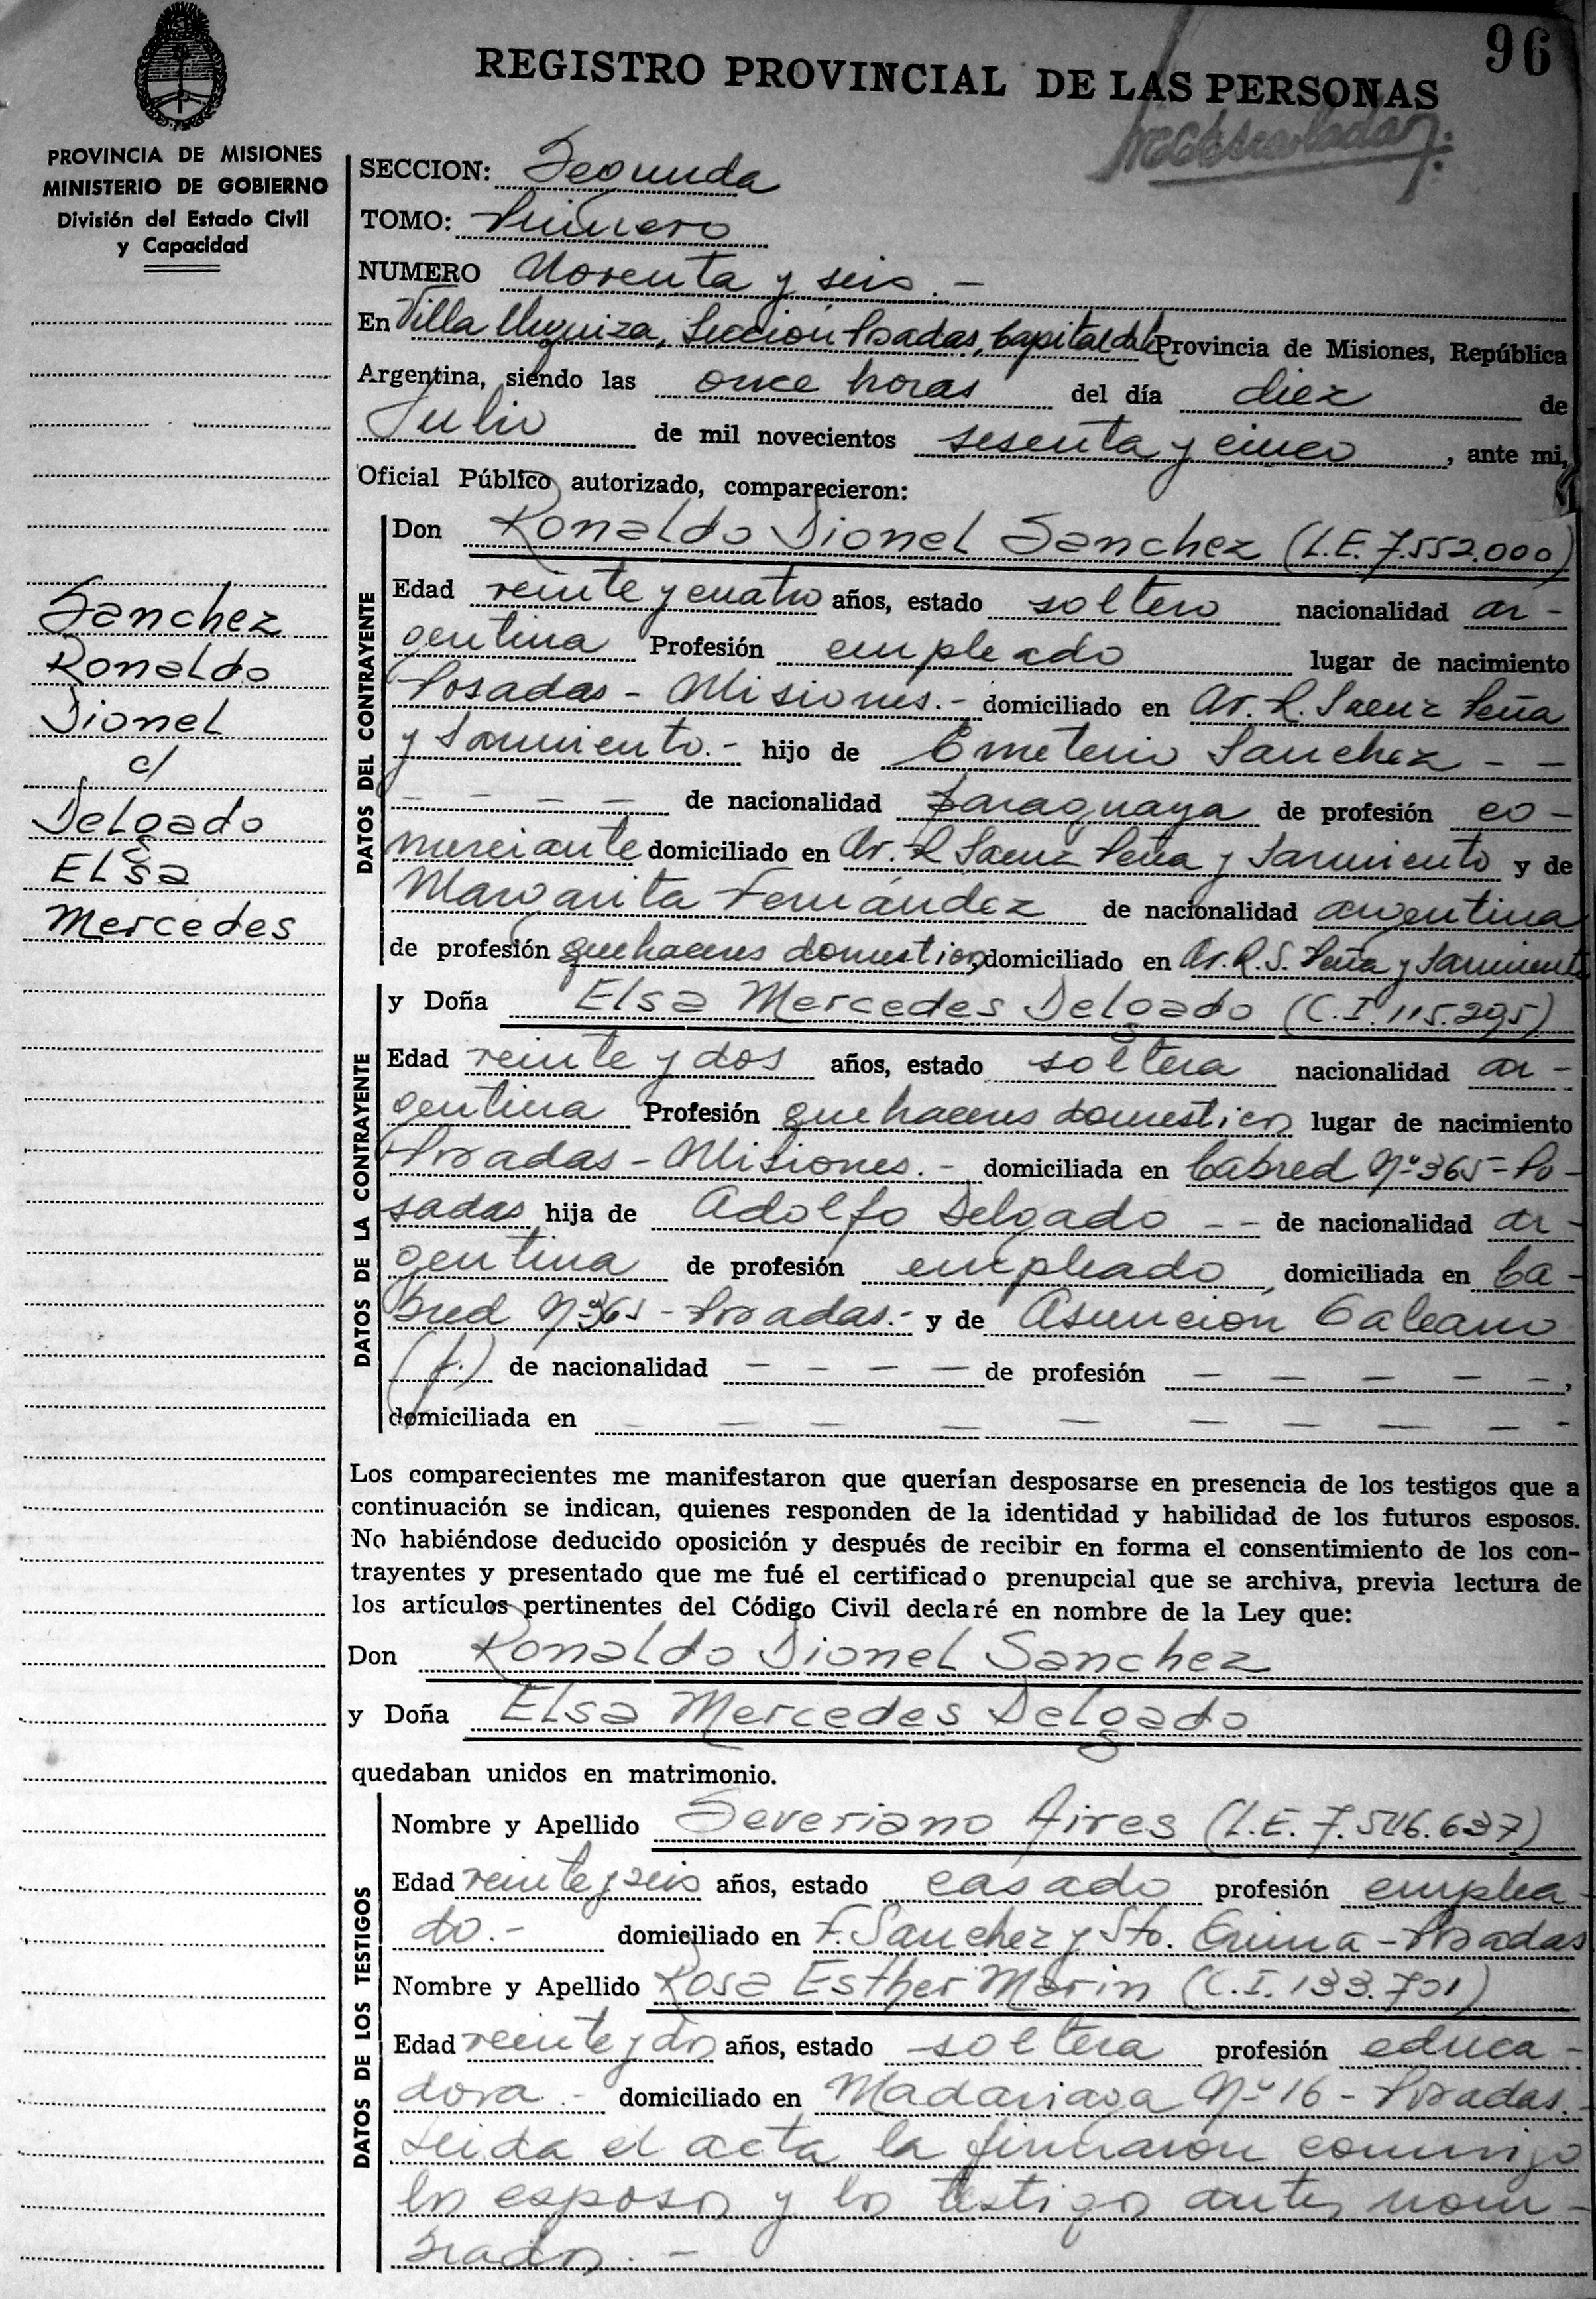 96
REGISTRO PROVINCIAL DE LAS PERSONAS
PROVINCIA DE MISIONES
MINISTERIO DE GOBIERNO
División del Estado Civil
y Capacidad
SECCION: Segunda
TOMO: Primero
NUMERO Noventa y seis.-
En Villa Urquiza, Sección Posadas, Capital de la Provincia de Misiones, República
Argentina, siendo las once horas del día diez de
Julio de mil novecientos sesenta y cinco, ante mi,
Oficial Público autorizado, comparecieron:
Sanchez
Ronaldo
Lionel
c/
Delgado
Elsa
Mercedes
DATOS DEL CONTRAYENTE
Don Ronaldo Lionel Sanchez (L.E. 7.552.000)
Edad veinte y cuatro años, estado soltero nacionalidad ar-
gentina Profesión empleado lugar de nacimiento
Posadas - Misiones.- domiciliado en Av. R. Saenz Peña
y Sarmiento.- hijo de Emeterio Sanchez - -
- - - - de nacionalidad paraguaya de profesión co-
merciante domiciliado en Av. R Saenz Peña y Sarmiento y de
Margarita Fernández de nacionalidad argentina
de profesión quehaceres domesticos, domiciliado en Av. R. S. Peña y Sarmiento
DATOS DE LA CONTRAYENTE
y Doña Elsa Mercedes Delgado (C.I. 115.295)
Edad veinte y dos años, estado soltera nacionalidad ar-
gentina Profesión quehaceres domesticos lugar de nacimiento
Posadas - Misiones.- domiciliada en Cabred Nº 365 - Po-
sadas hija de Adolfo Delgado - - de nacionalidad ar-
gentina de profesión empleado, domiciliada en Ca-
bred Nº 365 - Posadas.- y de Asuncion Galeano
(f.) de nacionalidad - - - - de profesión - - - - -,
domiciliada en - - - - - - - - -
Los comparecientes me manifestaron que querían desposarse en presencia de los testigos que a
continuación se indican, quienes responden de la identidad y habilidad de los futuros esposos.
No habiéndose deducido oposición y después de recibir en forma el consentimiento de los con-
trayentes y presentado que me fué el certificado prenupcial que se archiva, previa lectura de
los artículos pertinentes del Código Civil declaré en nombre de la Ley que:
Don Ronaldo Lionel Sanchez
y Doña Elsa Mercedes Delgado
quedaban unidos en matrimonio.
DATOS DE LOS TESTIGOS
Nombre y Apellido Severiano Aires (L.E. 7.546.637)
Edad veinte y seis años, estado casado profesión emplea-
do.- domiciliado en F. Sanchez y Sto. - Posadas
Nombre y Apellido Rosa Esther Morin (C.I. 133.701)
Edad veinte y dos años, estado soltera profesión educa-
dora.- domiciliado en Madariaga Nº 16 - Posadas.-
Leida el acta la firmaron conmigo
los esposos y los testigos antes nom-
brados.-